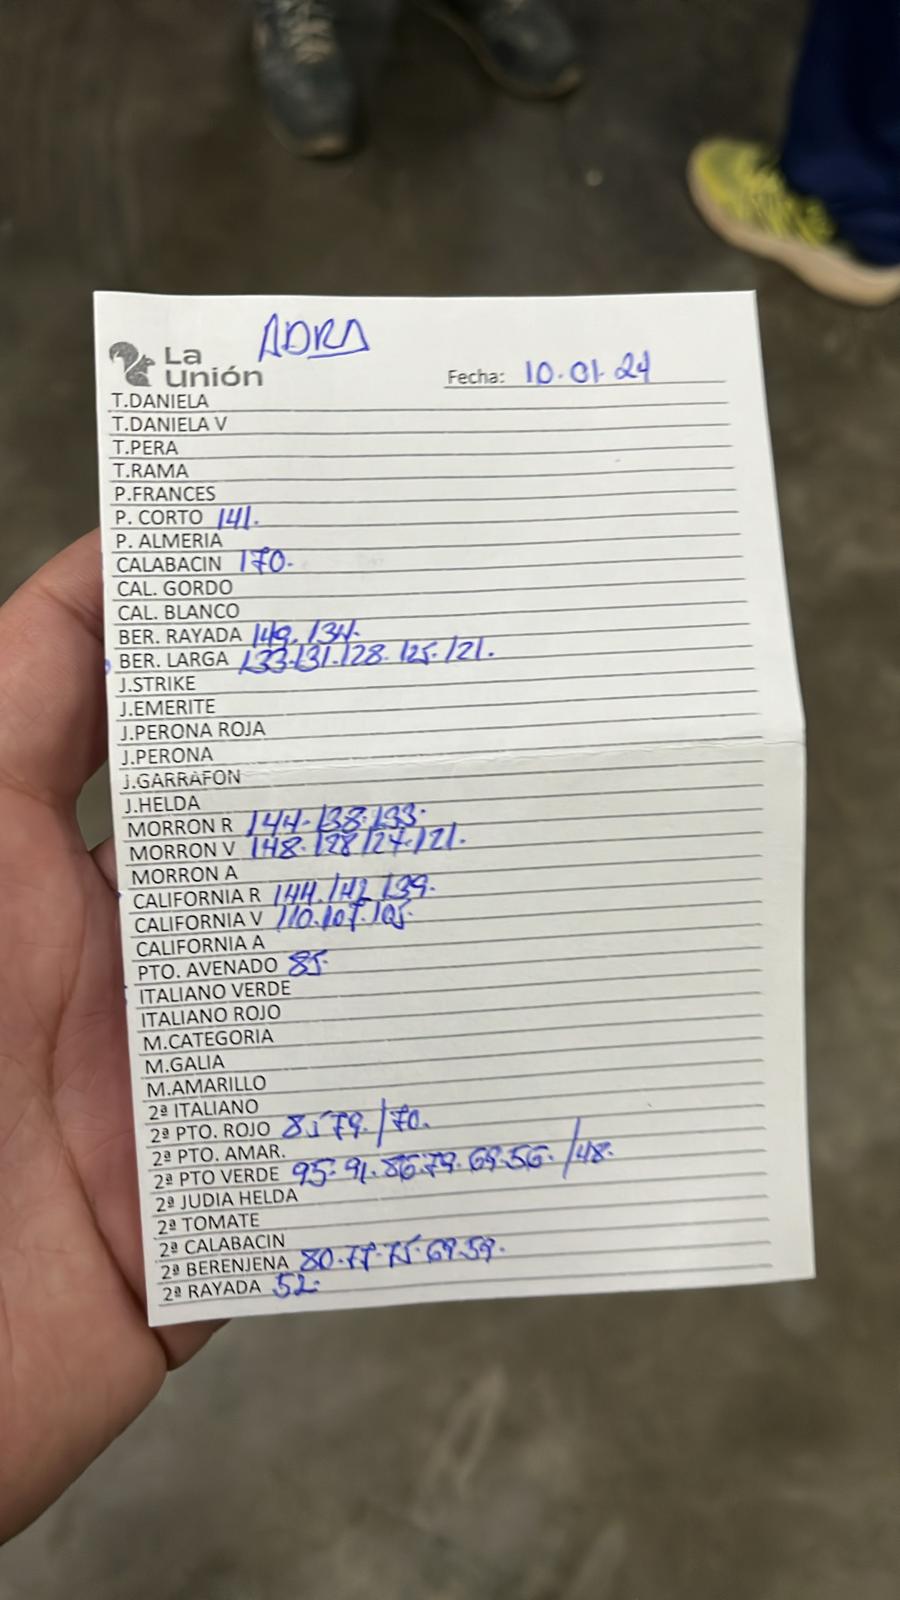 ADRA
La
Unión
Fecha: 10.01.24
T.DANELA
T.DANIELA V
T.PERA
T.RAMA
P.FRANCES
P. CORTO 141.
P. ALMERIA
CALABACIN 170.
CAL. GORDO
CAL. BLANCO
BER. RAYADA 149. 134.
BER. LARGA 133.131.128.125.121.
J.STRIKE
J.EMERITE
J.PERONA ROJA
J.PERONA
J.GARRAFON
J.HELDA
MORRON R 144.138.133.
MORRON V 148.128.127.121.
MORRON A
CALIFORNIA R 144.142.139.
CALIFORNIA V 110.107.105.
CALIFORNIA A
PTO. AVENADO 85.
ITALIANO VERDE
ITALIANO ROJO
M.CATEGORIA
M.GALIA
M.AMARILLO
2ª ITALIANO
2ª PTO. ROJO 85 79. /70.
2ª PTO. AMAR.
2ª PTO VERDE 95.91.86.79.69.56. /48.
2ª JUDIA HELDA
2ª TOMATE
2ª CALABACIN
2ª BERENJENA 80.77.75.69.59.
2ª RAYADA 52.